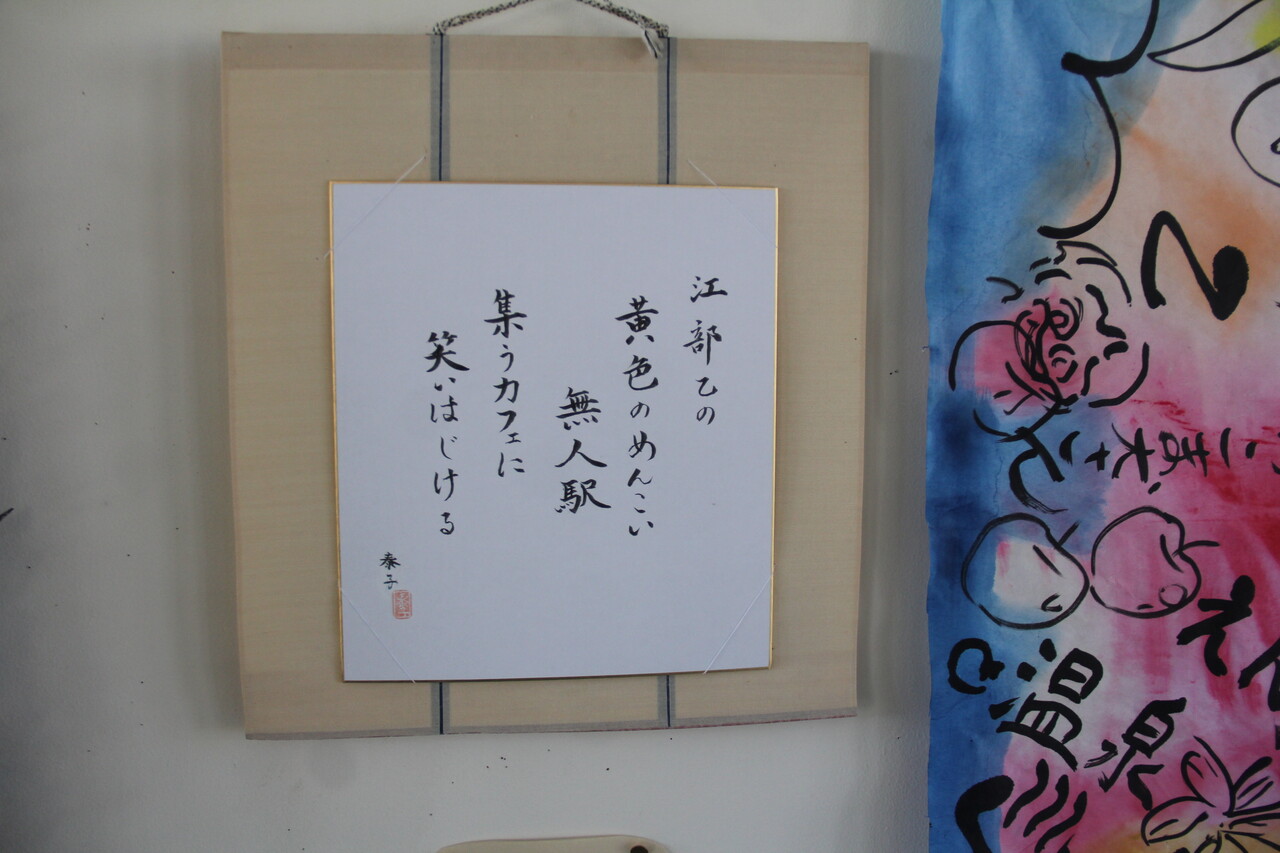 江部乙の
黄色のめんこい
無人駅
集うカフェに
笑いはじける
泰子
温泉